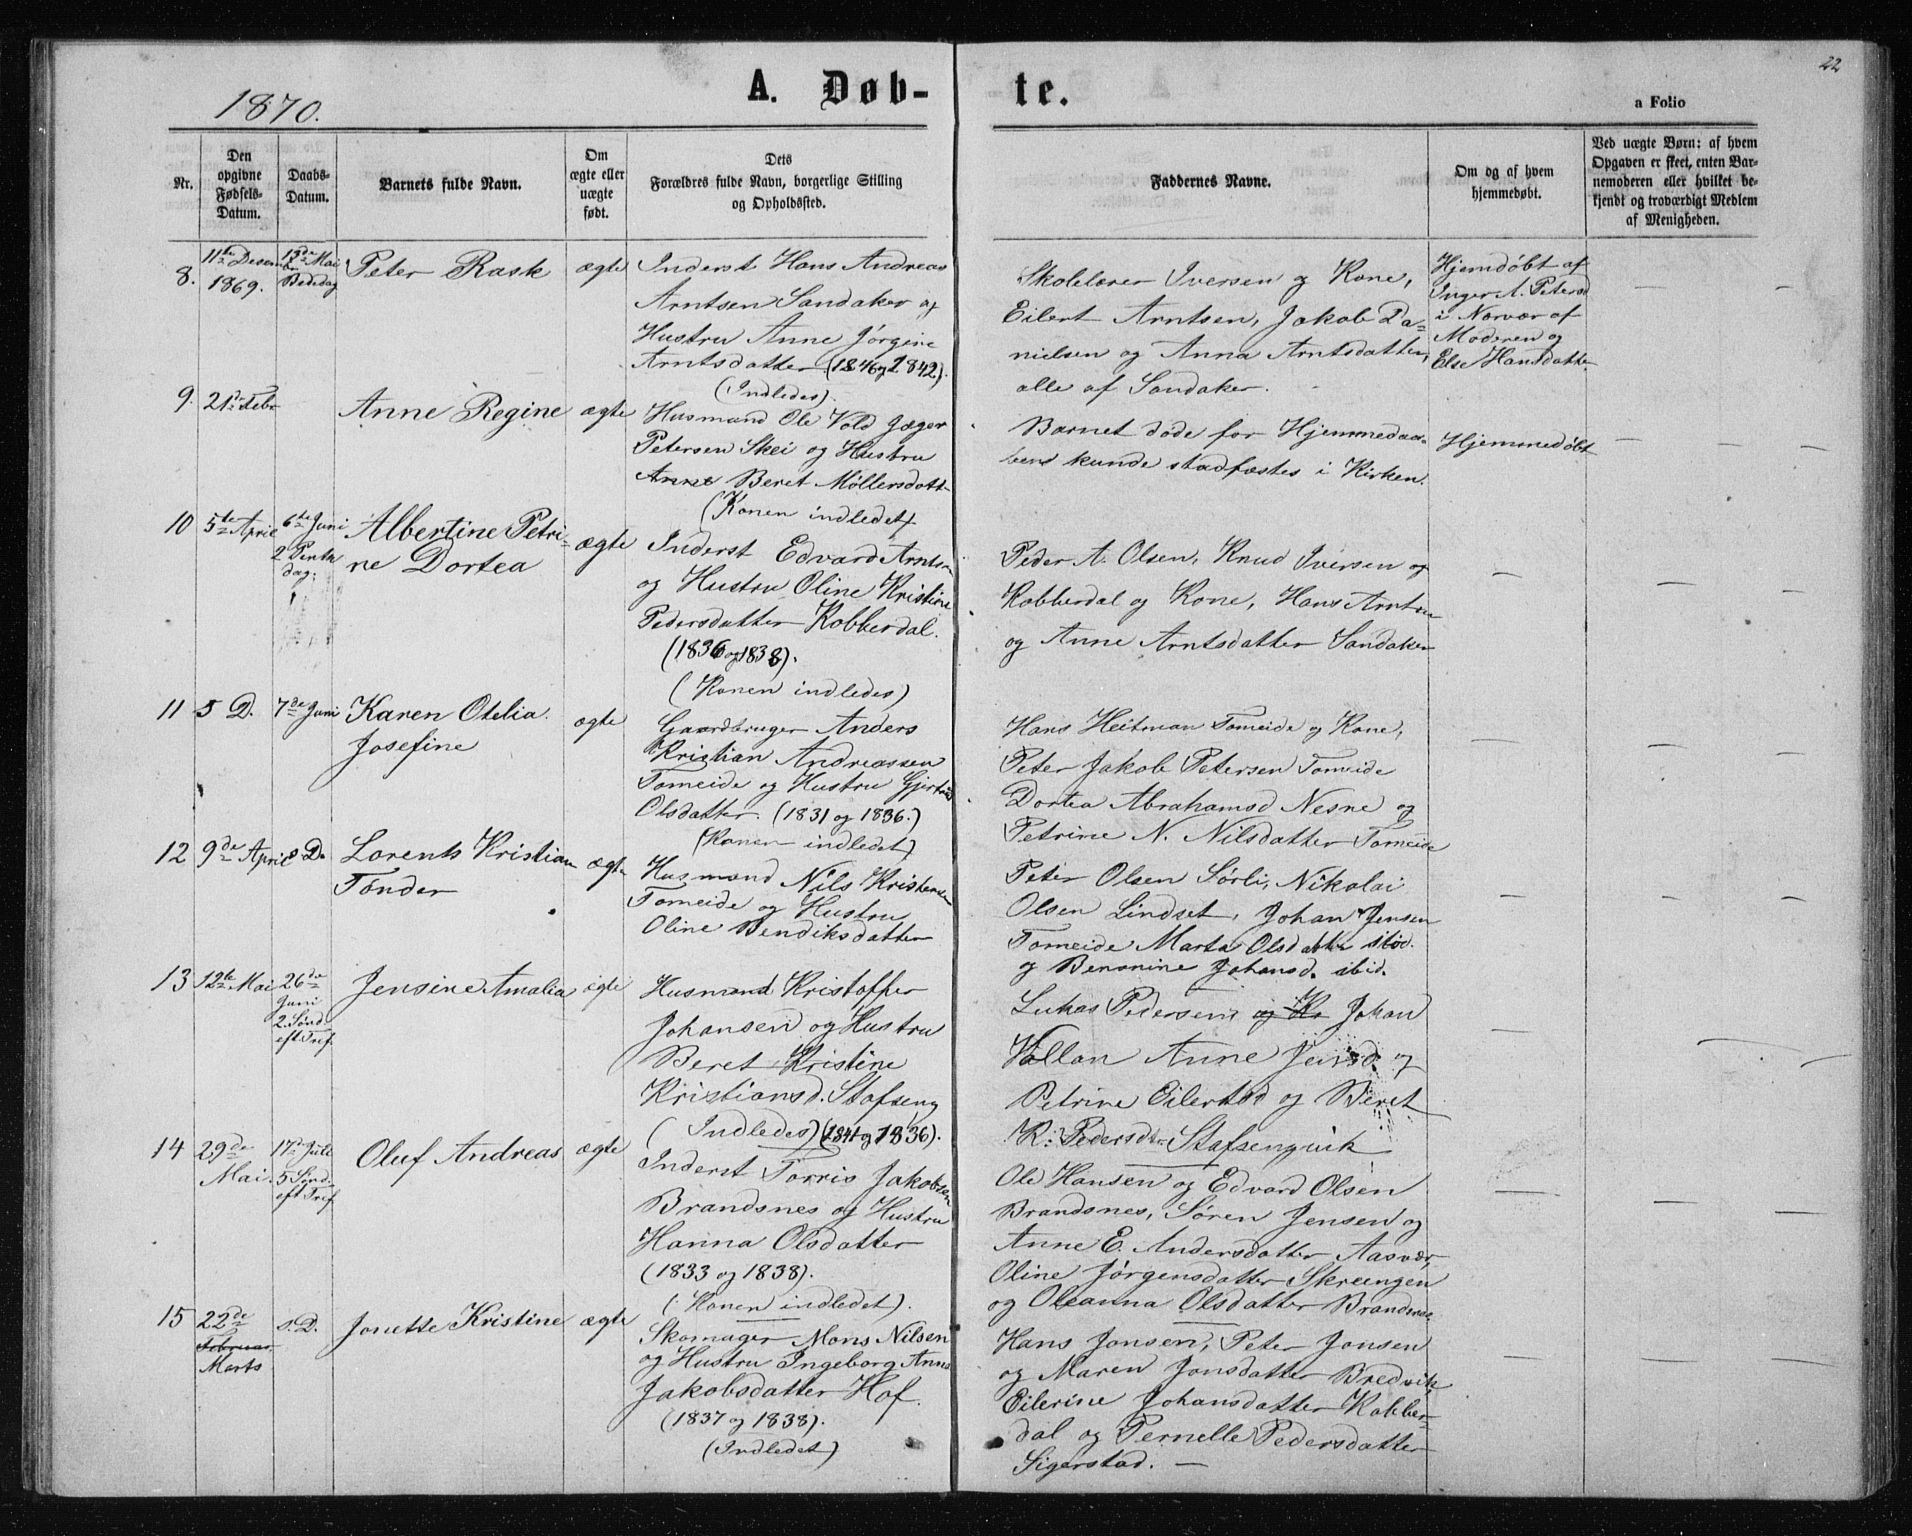 22
1870.
A. Døb-
te.
a Folio
Nr.
Den
opgivne
Fødsels-
Datum.
Daabs-
Datum.
Barnets fulde Navn.
Om
ægte eller
uægte
født.
Dets
Forældres fulde Navn, borgerlige Stilling
og Opholdssted.
Faddernes Navne.
Om og af hvem
hjemmedøbt.
Ved uægte Børn: af hvem
Opgaven er skeet, enten Bar-
nemoderen eller hvilket be-
kjendt og troværdigt Medlem
af Menigheden.
8.
11te Desem
br
1869.
13de Mai
Bededag
Peter Rask
ægte
Inderst Hans Andreas
Arntsen Sandaker og
Hustru Anne Jørgine
Arntsdatter (1846 og 1842).
(Indledes).
Skolelærer Iversen og Kone,
Eilert Arntsen, Jakob Da-
nielsen og Anna Arntsdatter,
alle af Sandaker.
Hjemdøbt af
Inger A. Petersd
i Nærvær af
Moderen og
Else Hansdatte-
9.
21de Febr
Anne Regine
ægte
Husmand Ole Vold Jæger
Petersen Skei og Hustru
Anne Beret Møllersdatt
(Konen indledet)
Barnet døde før Hjemmedaa-
ben kunde stadfæstes i Kirken.
Hjemmedøbt
10
5te April
6te Juni
2 Pentse
dag.
Albertine Petri-
ne Dortea
ægte
Inderst Edvard Arntsen
og Hustru Oline Kristine
Pedersdatter Kobberdal.
(1836 og 1838).
(Konen indledes)
Peder A. Olsen, Knud Iversen og
Kobberdal og Kone, Hans Arntsen
og Anne Arntsdatter Sandaker
11
5 D.
7de Juni
Karen Otelia
Josefine
ægte
Gaardbruger Anders
Kristian Andreassen
Tomeide og Hustru Gjertrud
Olsdatter. (1831 og 1836.)
(Konen indledet)
Hans Heitman Tomeide og Kone,
Peter Jakob Petersen Tomeide
Dortea Abrahamsd Nesne og
Petrine N. Nilsdatter Tomeide
12
9de April
s. D.
Lorents Kristian
Tønder
ægte
Husmand Nils Kristensen
Tomeide og Hustru
Oline Bendiksdatter
Peter Olsen Sørli, Nikolai
Olsen Lindset, Johan Jensen
Tomeide Marta Olsdatter ibid.
og Bensnine Johansd. ibid.
13
12te Mai
26de
Juni
2. Sønd.
eft Tref.
Jensine Amalia
ægte
Husmand Kristoffer
Johansen og Hustru
Beret Kristine
Kristiansd. Stafseng
(Indledes) (1841 og 1836).
Lukas Pedersen, og Kr Johan
Vollan Anne Jensd. og
Petrine Eilertsd og Beret
K. Pedersdtr Stafsengvik
14
29de
Mai.
17de Juli
5 Sønd.
eft Tref.
Oluf Andreas
ægte
Inderst Torris Jakobsen
Brandsnes og Hustru
Hanna Olsdatter
(1833 og 1838).
(Konen indledet).
Ole Hansen og Edvard Olsen
Brandsnes, Søren Jensen og
Anne E. Andersdatter Aasvær,
Oline Jørgensdatter Skreengen
og Oleanna Olsdatter Brandsnes.
15
22de
Februar
Marts
s. D.
Jonette Kristine
ægte
Skomager Mons Nilsen
og Hustru Ingeborg Anna
Jakobsdatter Hof.
(1837 og 1838).
(Indledet)
Hans Jonsen, Peter Jonsen
og Maren Jonsdatter Bredvik,
Eilerine Johansdatter Kobber-
dal og Pernelle Pedersdatter
Sigerstad.